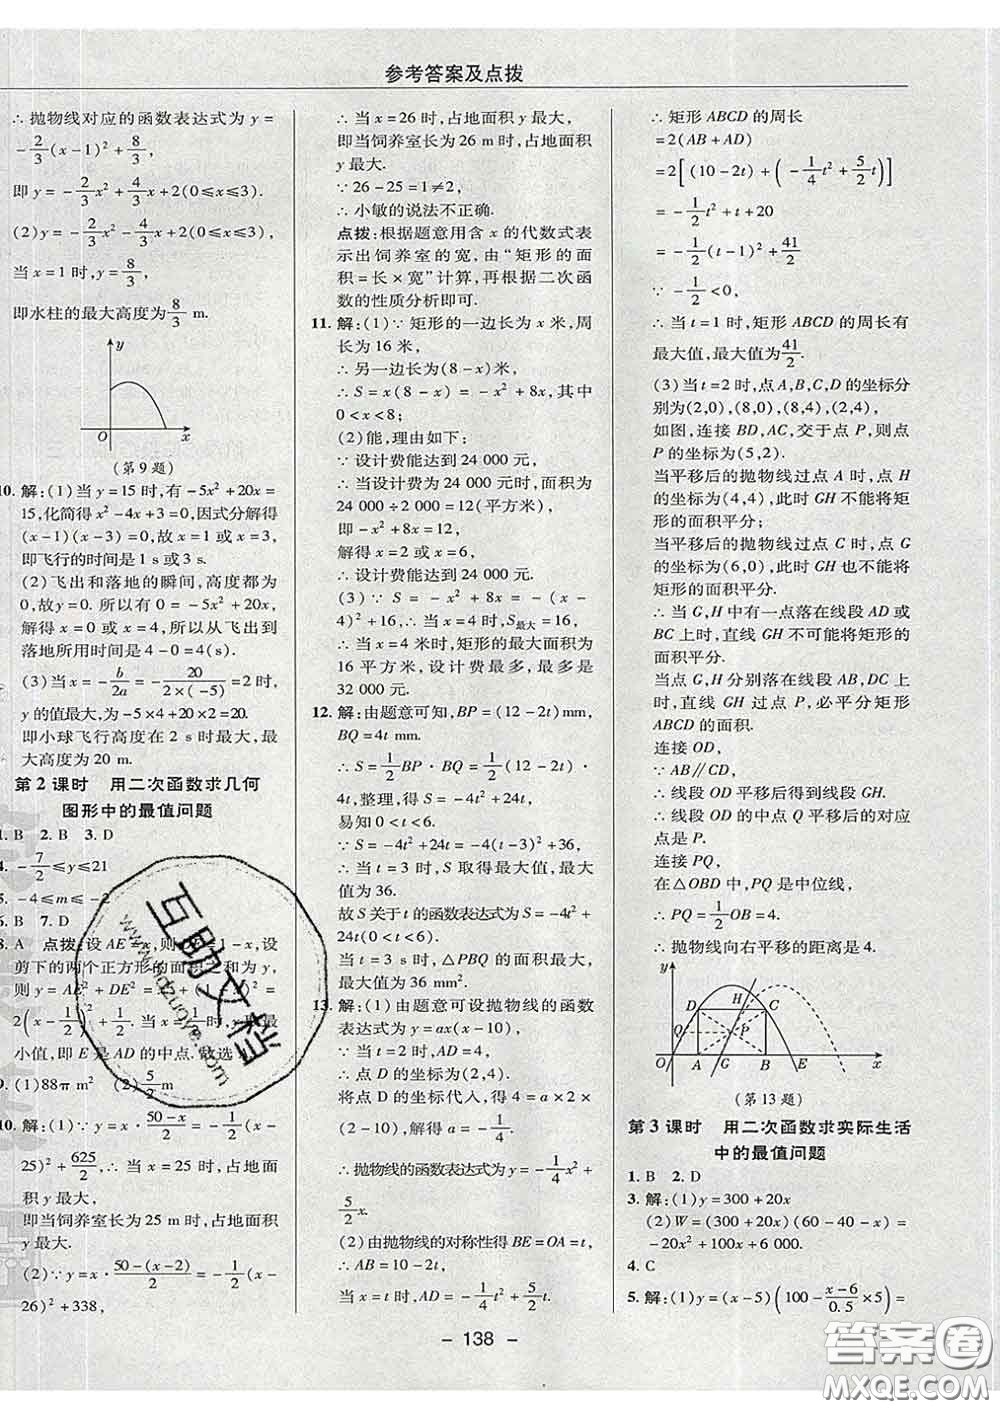 参考答案及点拨
∴抛物线对应的函数表达式为 y=
-2/3(x-1)²+8/3,
即 y=-2/3x²+4/3x+2(0≤x≤3).
(2)y=-2/3x²-4/3x+2(0≤x≤3),
当 x=1 时,y=8/3,
即水柱的最大高度为 8/3 m.
y
O x
(第 9 题)
10. 解:(1)当 y=15 时,有-5x²+20x=
15,化简得 x²-4x+3=0,因式分解得
(x-1)(x-3)=0,故 x=1 或 x=3,
即飞行的时间是 1 s 或 3 s.
(2)飞出和落地的瞬间,高度都为
0,故 y=0. 所以有 0=-5x²+20x,
解得 x=0 或 x=4,所以从飞出到
落地所用时间是 4-0=4(s).
(3)当 x=-b/2a=-20/(2×(-5))=2 时,
y 的值最大,为-5×4+20×2=20.
即小球飞行高度在 2 s 时最大,最
大高度为 20 m.
第 2 课时 用二次函数求几何
图形中的最值问题
1. B 2. B 3. D
4. -7/2≤y≤21
5. -4≤m≤-2
6. B 7. D
8. A 点拨:设 AE=x,则 DE=1-x,设
剪下的两个正方形的面积之和为 y,
则 y=AE²+DE²=x²+(1-x)²=
2(x-1/2)²+1/2. 当 x=1/2时,y 取最
小值,即 E 是 AD 的中点. 故选 A.
9. (1)88π m² (2)5/2 m
10. 解:(1)∵y=x·(50-x)/2=-1/2(x-
25)²+625/2,∴当 x=25 时,占地面
积 y 最大,
即当饲养室长为 25 m 时,占地面积
y 最大.
(2)∵y=x·(50-(x-2))/2=-1/2(x-
26)²+338,
∴当 x=26 时,占地面积 y 最大,
即当饲养室长为 26 m 时,占地面积
y 最大.
∵26-25=1≠2,
∴小敏的说法不正确.
点拨:根据题意用含 x 的代数式表
示出饲养室的宽,由“矩形的面
积=长×宽”计算,再根据二次函
数的性质分析即可.
11. 解:(1)∵矩形的一边长为 x 米,周
长为 16 米,
∴另一边长为(8-x)米,
∴S=x(8-x)=-x²+8x,其中
0<x<8;
(2)能,理由如下:
∵设计费能达到 24 000 元,
∴当设计费为 24 000 元时,面积为
24 000÷2 000=12(平方米),
即-x²+8x=12,
解得 x=2 或 x=6,
∴设计费能达到 24 000 元.
(3)∵S=-x²+8x=-(x-
4)²+16,∴当 x=4 时,S最大=16,
∴当 x=4 米时,矩形的最大面积为
16 平方米,设计费最多,最多是
32 000 元.
12. 解:由题意可知,BP=(12-2t)mm,
BQ=4t mm,
∴S=1/2BP·BQ=1/2(12-2t)·
4t,整理,得 S=-4t²+24t,
易知 0<t<6.
∵S=-4t²+24t=-4(t-3)²+36,
∴当 t=3 时,S 取得最大值,最大
值为 36.
故 S 关于 t 的函数表达式为 S=-4t²+
24t(0<t<6).
当 t=3 s 时,△PBQ 的面积最大,
最大值是 36 mm².
13. 解:(1)由题意可设抛物线的函数
表达式为 y=ax(x-10),
∵当 t=2 时,AD=4,
∴点 D 的坐标为(2,4).
将点 D 的坐标代入,得 4=a×2×
(2-10),解得 a=-1/4,
∴抛物线的函数表达式为 y=-1/4x²+
5/2x.
(2)由抛物线的对称性得 BE=OA=t,
∴AB=10-2t,
当 x=t 时,AD=-1/4t²+5/2t,
∴矩形 ABCD 的周长
=2(AB+AD)
=2[(10-2t)+(-1/4t²+5/2t)]
=-1/2t²+t+20
=-1/2(t-1)²+41/2,
∵-1/2<0,
∴当 t=1 时,矩形 ABCD 的周长有
最大值,最大值为41/2.
(3)当 t=2 时,点 A,B,C,D 的坐标分
别为(2,0),(8,0),(8,4),(2,4),
如图,连接 BD,AC,交于点 P,则点
P 的坐标为(5,2).
当平移后的抛物线过点 A 时,点 H
的坐标为(4,4),此时 GH 不能将矩
形的面积平分;
当平移后的抛物线过点 C 时,点 G
的坐标为(6,0),此时 GH 也不能将
矩形的面积平分.
∴当 G,H 中有一点落在线段 AD 或
BC 上时,直线 GH 不可能将矩形的
面积平分.
当点 G,H 分别落在线段 AB,DC 上
时,直线 GH 过点 P,必平分矩形
ABCD 的面积.
连接 OD,
∵AB∥CD,
∴线段 OD 平移后得到线段 GH.
∴线段 OD 的中点 Q 平移后的对应
点是 P.
连接 PQ,
在△OBD 中,PQ 是中位线,
∴PQ=1/2OB=4.
∴抛物线向右平移的距离是 4.
y
D H C
Q P
O A G B E x
(第 13 题)
第 3 课时 用二次函数求实际生活
中的最值问题
1. B 2. D
3. 解:(1)y=300+20x
(2)W=(300+20x)(60-40-x)=
-20x²+100x+6 000.
4. C
5. 解:(1)y=(x-5)(100-(x-6)/0.5×5)=
- 138 -
互助文档
www.hdzuoye.com
答案圈
MXQE.COM